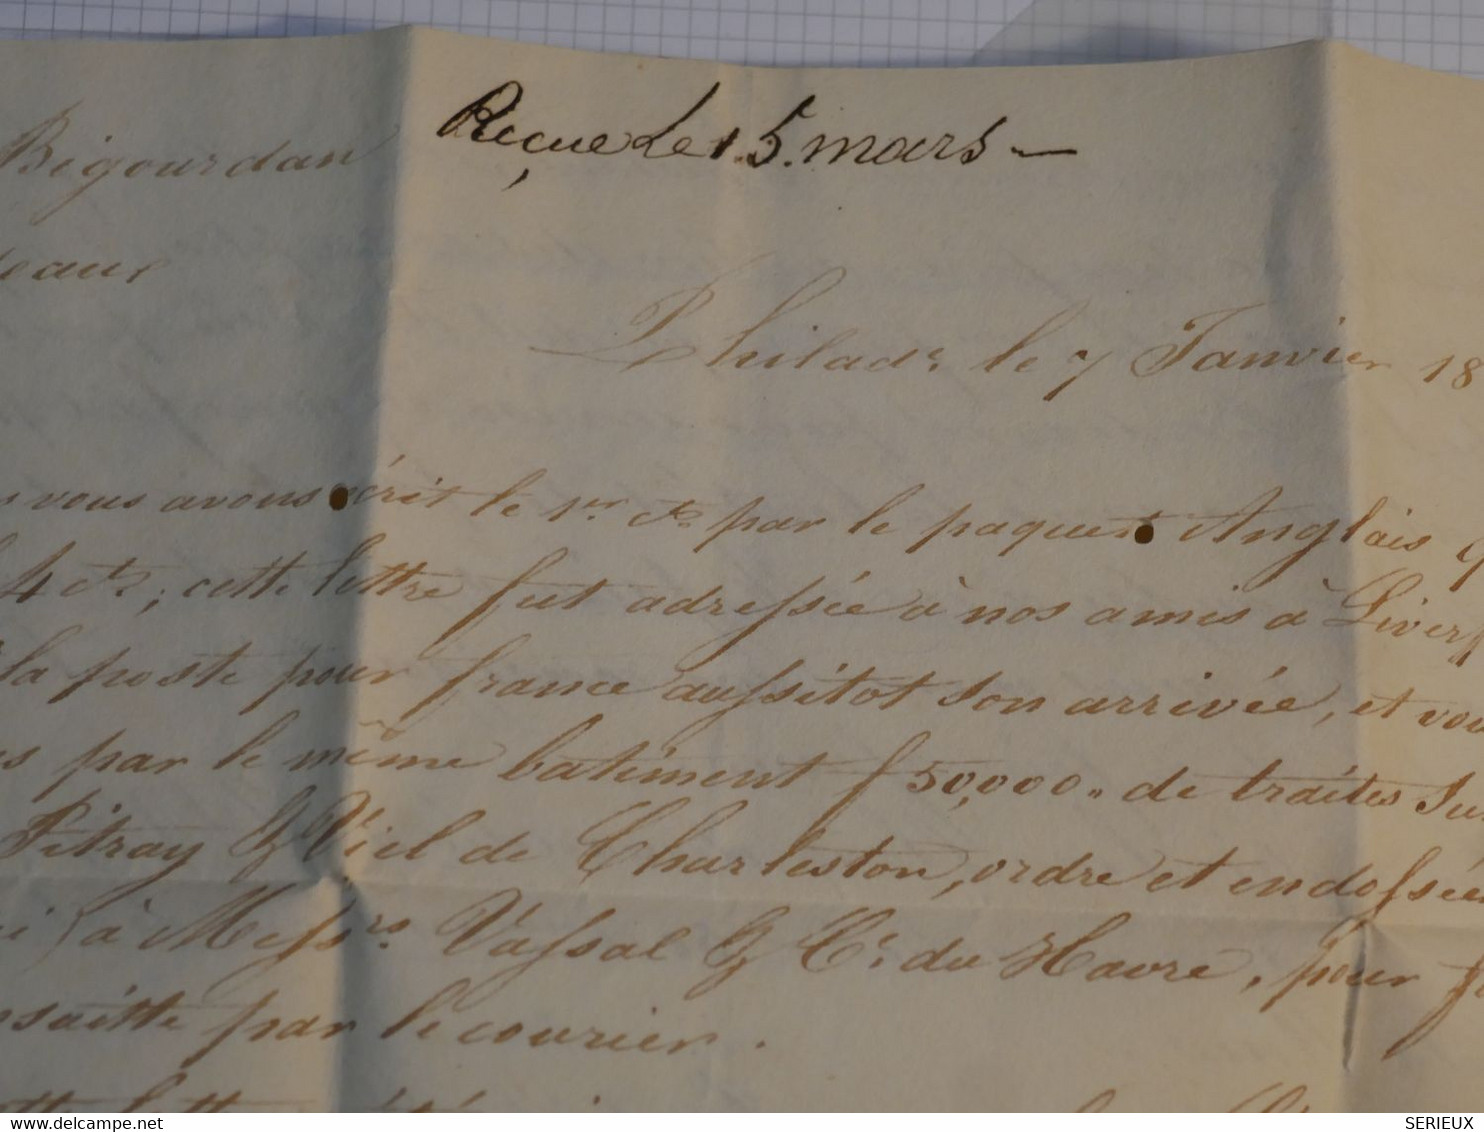 Bigourdan
Reçue Le 15. mars —
eaux
Philade. le 7 Janvier 18
vous avons écrit le 1er. ct. par le paquet Anglais q
4 ct; cette lettre fut adressée à nos amis à Liverp
la poste pour france aussitot son arrivée, et vou
s par le même batiment f 50,000.. de traites Su
Pitray & Viel de Charleston, ordre et endossée
à Messrs. Vassal & Ce. du Havre, pour f
nsaitte par le courier.
lettre
DELCAMPE.NET
SERIEUX